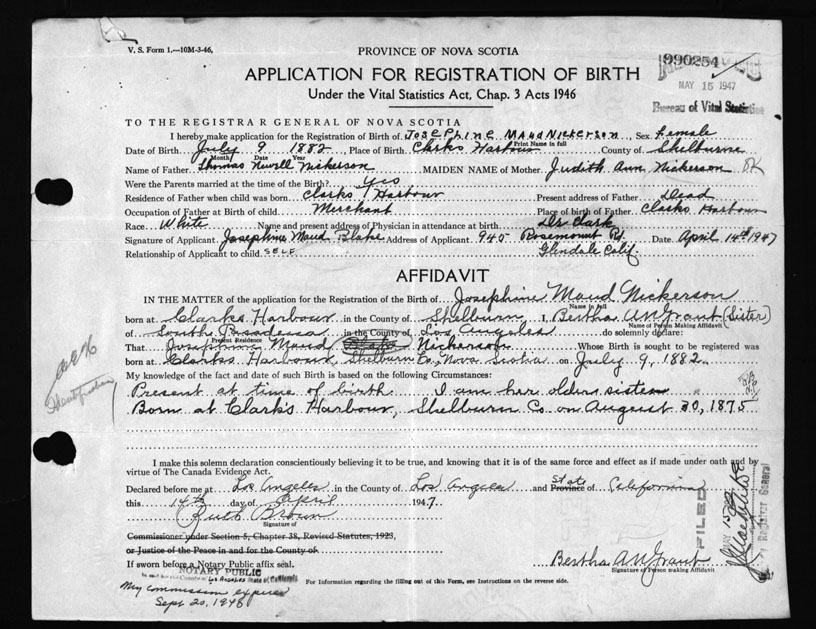 V. S. Form 1.—10M-3-46,
PROVINCE OF NOVA SCOTIA
990254
APPLICATION FOR REGISTRATION OF BIRTH
MAY 15 1947
Under the Vital Statistics Act, Chap. 3 Acts 1946
Bureau of Vital Statistics
TO THE REGISTRAR GENERAL OF NOVA SCOTIA
I hereby make application for the Registration of Birth of JOSEPHINE MAUD NICKERSON, Sex Female
Print Name in full
Date of Birth July 9 1882, Place of Birth Clarks Harbour County of Shelburne
Month Date Year
Name of Father Thomas Newell Nickerson MAIDEN NAME of Mother Judith Ann Nickerson OK
Were the Parents married at the time of the Birth? yes
Residence of Father when child was born Clarks Harbour Present address of Father Dead
Occupation of Father at Birth of child Merchant Place of birth of Father Clarks Harbour
Race White Name and present address of Physician in attendance at birth Dr Clark
Signature of Applicant Josephine Maud Blake Address of Applicant 945 Rosemount Rd. Date April 14th 1947
Relationship of Applicant to child SELF Glendale Calif.
AFFIDAVIT
IN THE MATTER of the application for the Registration of the Birth of Josephine Maud Nickerson
Name in full
born at Clarks Harbour in the County of Shelburn, I, Bertha A N Grant (Sister)
Name of Person Making Affidavit
of South Pasadena in the County of Los Angeles do solemnly declare:
Present Residence
That Josephine Maud Blake Nickerson Whose Birth is sought to be registered was
born at Clarks Harbour, Shelburn Co, Nova Scotia on July 9, 1882
My knowledge of the fact and date of such Birth is based on the following Circumstances:
Present at time of birth I am her older sister
Born at Clark's Harbour, Shelburn Co on August 30, 1875
I make this solemn declaration conscientiously believing it to be true, and knowing that it is of the same force and effect as if made under oath and by
virtue of The Canada Evidence Act.
Declared before me at Los Angeles in the County of Los Angeles and State Province of California
this 14th day of April 1947
Ruth Brown
Signature of
Commissioner under Section 5, Chapter 38, Revised Statutes, 1923,
or Justice of the Peace in and for the County of
If sworn before a Notary Public affix seal.
NOTARY PUBLIC
Los Angeles State of California
Bertha A N Grant
Signature of Person making Affidavit
For Information regarding the filling out of this Form, see Instructions on the reverse side.
My commission expires
Sept 20, 1948
FILED
MAY 15
Registrar General